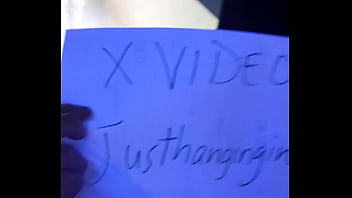 X VIDEO
Justhangingin